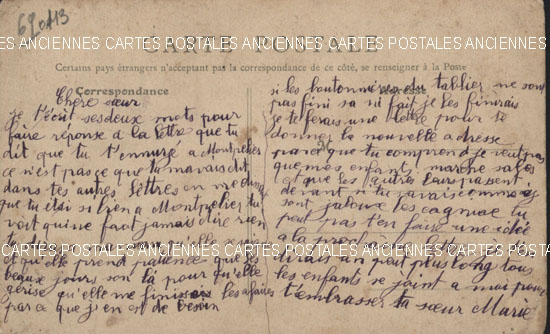 69043
CARTE POSTALE
ES ANCIENNES CARTES POSTALES ANCIENNES CARTES POSTALES ANCIENNES CARTES POSTALES
Certains pays étrangers n'acceptant pas la correspondance de ce côté, se renseigner à la Poste
Correspondance
Chere sœur
je t'écrit ses deux mots pour
faire réponse a la lettre que tu
dit que tu t'ennuyé a Montpelier
ce n'est pas ce que tu m'avais dit
dans tes autres lettres en me
que tu étai si bien a Montpelier, tu
voit qu'ine faut jamais dire rien
ES ANCIENNES CARTES POSTALES ANCIENNES CARTES POSTALES ANCIENNES CARTES POSTALES
et qu'elle prend patience que les
beaux jours son la pour qu'elle
gerise qu'elle me finisse les afaires
par ce que j'en et de besoin
si les boutonnières du tablier ne sont
pas fini sa ni fait je les finirais
je te ferais une lettre pour te
donner la nouvelle adresse
parce que tu comprend je veut pas
que mes enfant marche sales
et que les autres leurs passent
devant si tu savais comme
sont jaloux les tu
peut pas t'en faire une idée
a la
plus long tous
les enfants se joint a moi pour
t'embrasser ta sœur Marie